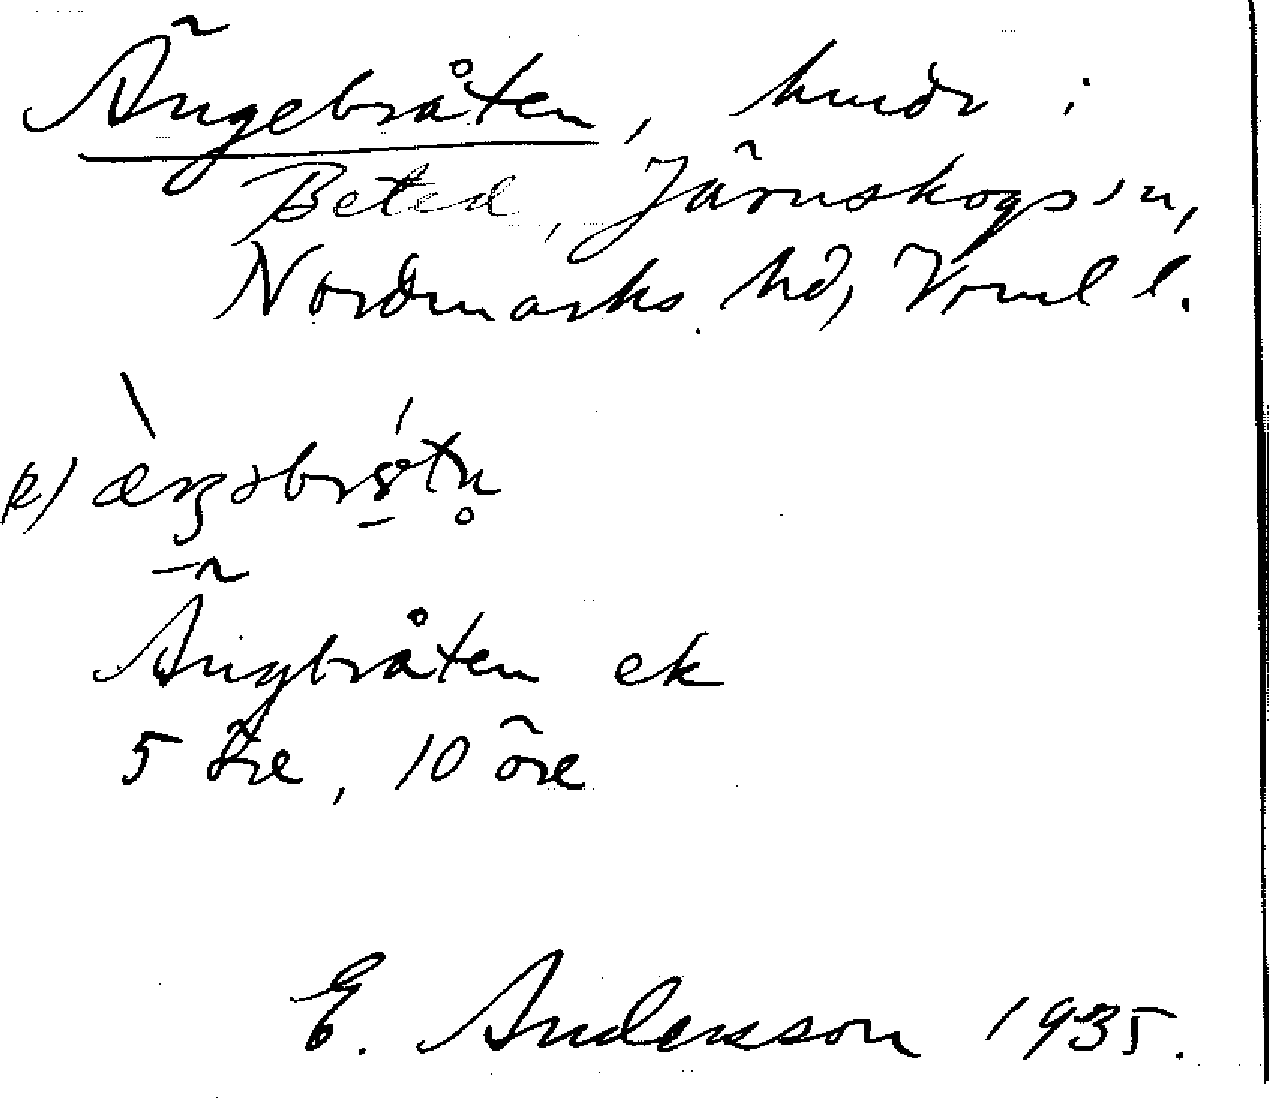 Ängebråten, hmdr i
Beted, Järnskogs sn,
Nordmarks hd, Vrml l.
Ängbråten ek
5 öre, 10 öre
E. Andersson 1935.